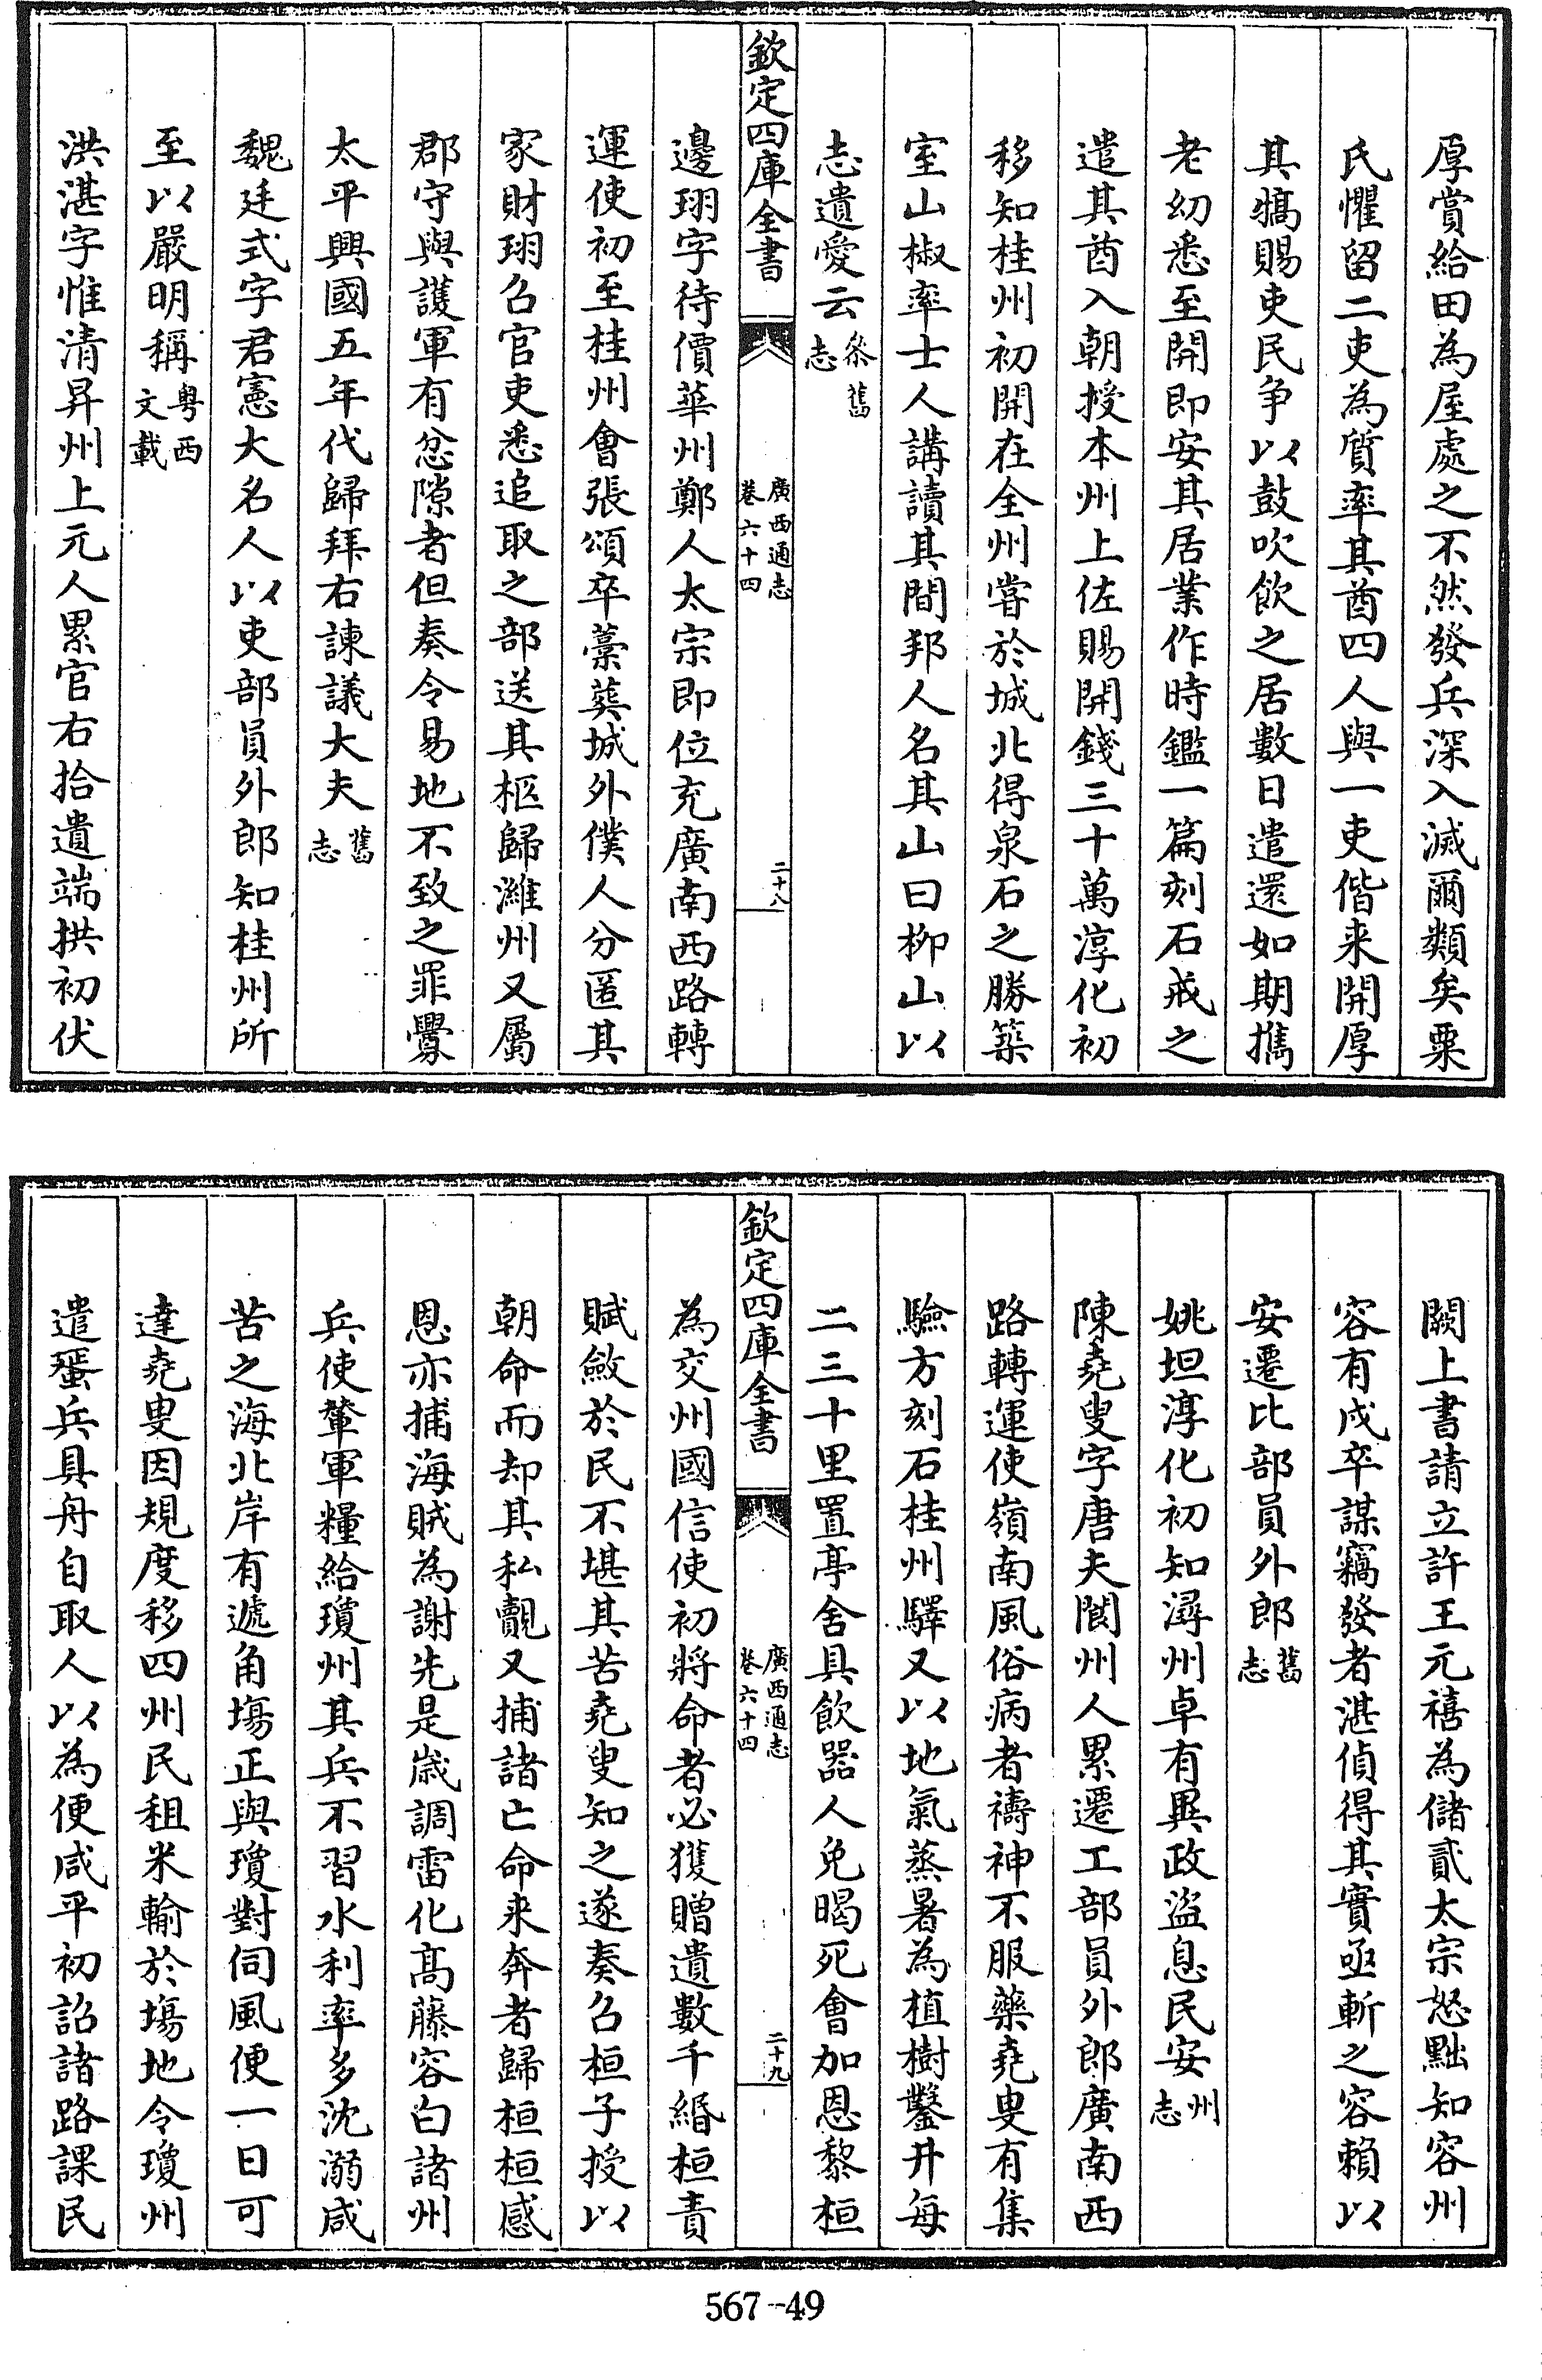 厚賞給田為屋處之不然發兵深入滅爾類矣粟
氏懼留二吏為質率其酋四人與一吏偕来開厚
其犒賜吏民争以鼓吹飲之居數日遣還如期攜
老幼悉至開即安其居業作時鑑一篇刻石戒之
遣其酋入朝授本州上佐賜開錢三十萬淳化初
移知桂州初開在全州嘗於城北得泉石之勝築
室山椒率士人講讀其間邦人名其山曰柳山以
志遺愛云叅舊志
欽定四庫全書
廣西通志
卷六十四
二十八
邊珝字待價華州鄭人太宗即位充廣南西路轉
運使初至桂州會張頌卒藁葬城外僕人分匿其
家財珝召官吏悉追取之部送其柩歸濰州又屬
郡守與護軍有忿隙者但奏令易地不致之罪釁
太平興國五年代歸拜右諫議大夫舊志
魏廷式字君憲大名人以吏部員外郎知桂州所
至以嚴明稱粤西文載
洪湛字惟清昇州上元人累官右拾遺端拱初伏
闕上書請立許王元禧為儲貳太宗怒黜知容州
容有戍卒謀竊發者湛偵得其實亟斬之容賴以
安遷比部員外郎舊志
姚坦淳化初知潯州卓有異政盜息民安州志
陳堯叟字唐夫閬州人累遷工部員外郎廣南西
路轉運使嶺南風俗病者禱神不服藥堯叟有集
驗方刻石桂州驛又以地氣蒸暑為植樹鑿井每
二三十里置亭舍具飲器人免暍死會加恩黎桓
欽定四庫全書
廣西通志
卷六十四
二十九
為交州國信使初將命者必獲贈遺數千緡桓責
賦斂於民不堪其苦堯叟知之遂奏召桓子授以
朝命而却其私覿又捕諸亡命来奔者歸桓桓感
恩亦捕海賊為謝先是歳調雷化髙藤容白諸州
兵使輦軍糧給瓊州其兵不習水利率多沈溺咸
苦之海北岸有遞角場正與瓊對伺風便一日可
達堯叟因規度移四州民租米輸於場地令瓊州
遣蜑兵具舟自取人以為便咸平初詔諸路課民
567-49